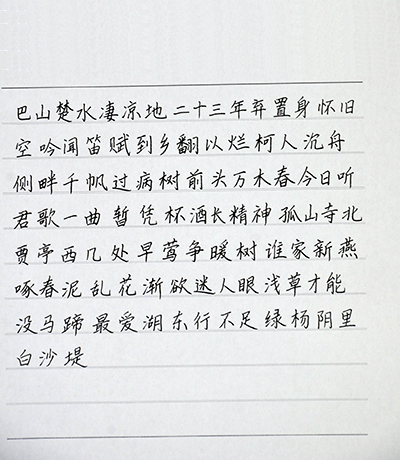 巴山楚水凄凉地二十三年弃置身怀旧
空吟闻笛赋到乡翻以烂柯人沉舟
侧畔千帆过病树前头万木春今日听
君歌一曲暂凭杯酒长精神孤山寺北
贾亭西几处早莺争暖树谁家新燕
啄春泥乱花渐欲迷人眼浅草才能
没马蹄最爱湖东行不足绿杨阴里
白沙堤